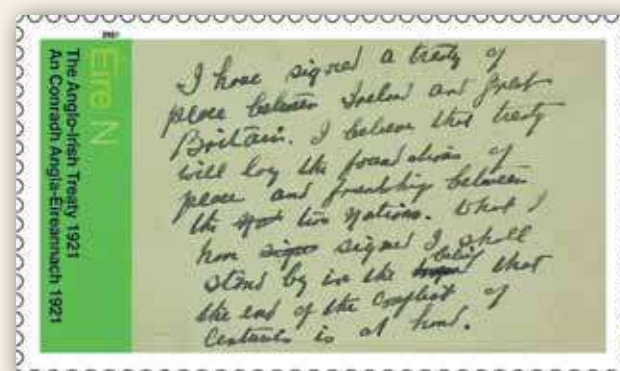 2021
Éire N
The Anglo-Irish Treaty 1921
An Conradh Angla-Éireannach 1921
I have signed a treaty of
peace between Ireland and Great
Britain. I believe that treaty
will lay the foundations of
peace and friendship between
the two Nations. What I
have signed I shall
stand by in the belief that
the end of the conflict of
Centuries is at hand.